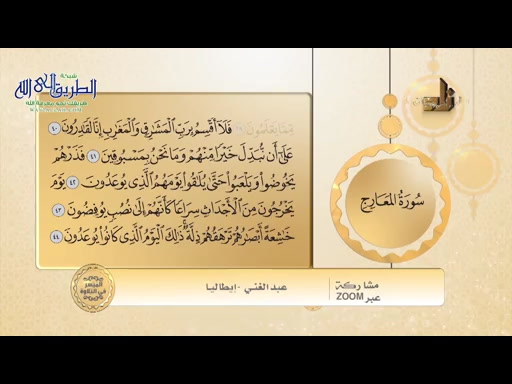 شبكة
الطريق إلى الله
مِّمَّا يَعْلَمُونَ ٣٩ فَلَآ أُقْسِمُ بِرَبِّ ٱلْمَشَٰرِقِ وَٱلْمَغَٰرِبِ إِنَّا لَقَٰدِرُونَ ٤٠
عَلَىٰٓ أَن نُّبَدِّلَ خَيْرًا مِّنْهُمْ وَمَا نَحْنُ بِمَسْبُوقِينَ ٤١ فَذَرْهُمْ
يَخُوضُوا۟ وَيَلْعَبُوا۟ حَتَّىٰ يُلَٰقُوا۟ يَوْمَهُمُ ٱلَّذِى يُوعَدُونَ ٤٢ يَوْمَ
يَخْرُجُونَ مِنَ ٱلْأَجْدَاثِ سِرَاعًا كَأَنَّهُمْ إِلَىٰ نُصُبٍ يُوفِضُونَ ٤٣
خَٰشِعَةً أَبْصَٰرُهُمْ تَرْهَقُهُمْ ذِلَّةٌ ذَٰلِكَ ٱلْيَوْمُ ٱلَّذِى كَانُوا۟ يُوعَدُونَ ٤٤
سُورَةُ المَعَارِج
مشاركة
عبر ZOOM
عبد الغني - إيطاليا
الميسر
في التلاوة